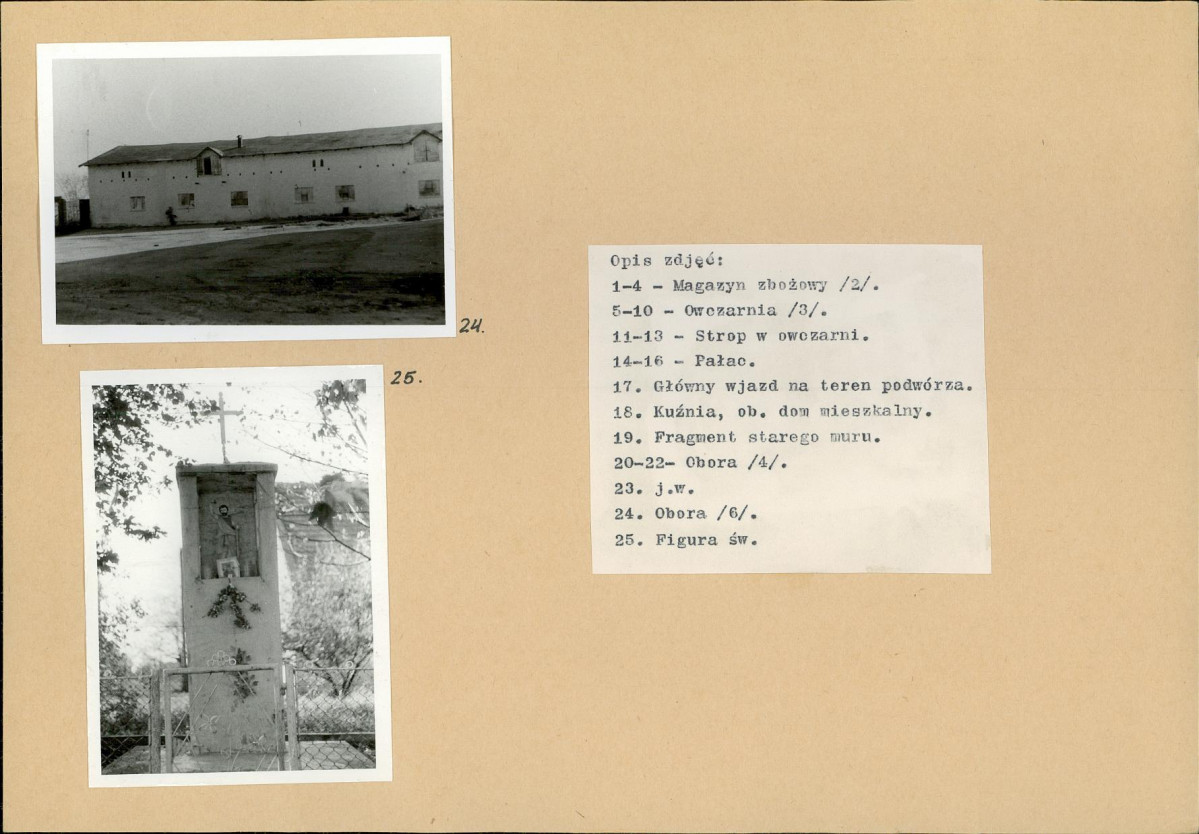 24.
25.
Opis zdjęć:
1-4 - Magazyn zbożowy /2/.
5-10 - Owczarnia /3/.
11-13 - Strop w owczarni.
14-16 - Pałac.
17. Główny wjazd na teren podwórza.
18. Kuźnia, ob. dom mieszkalny.
19. Fragment starego muru.
20-22- Obora /4/.
23. j.w.
24. Obora /6/.
25. Figura św.